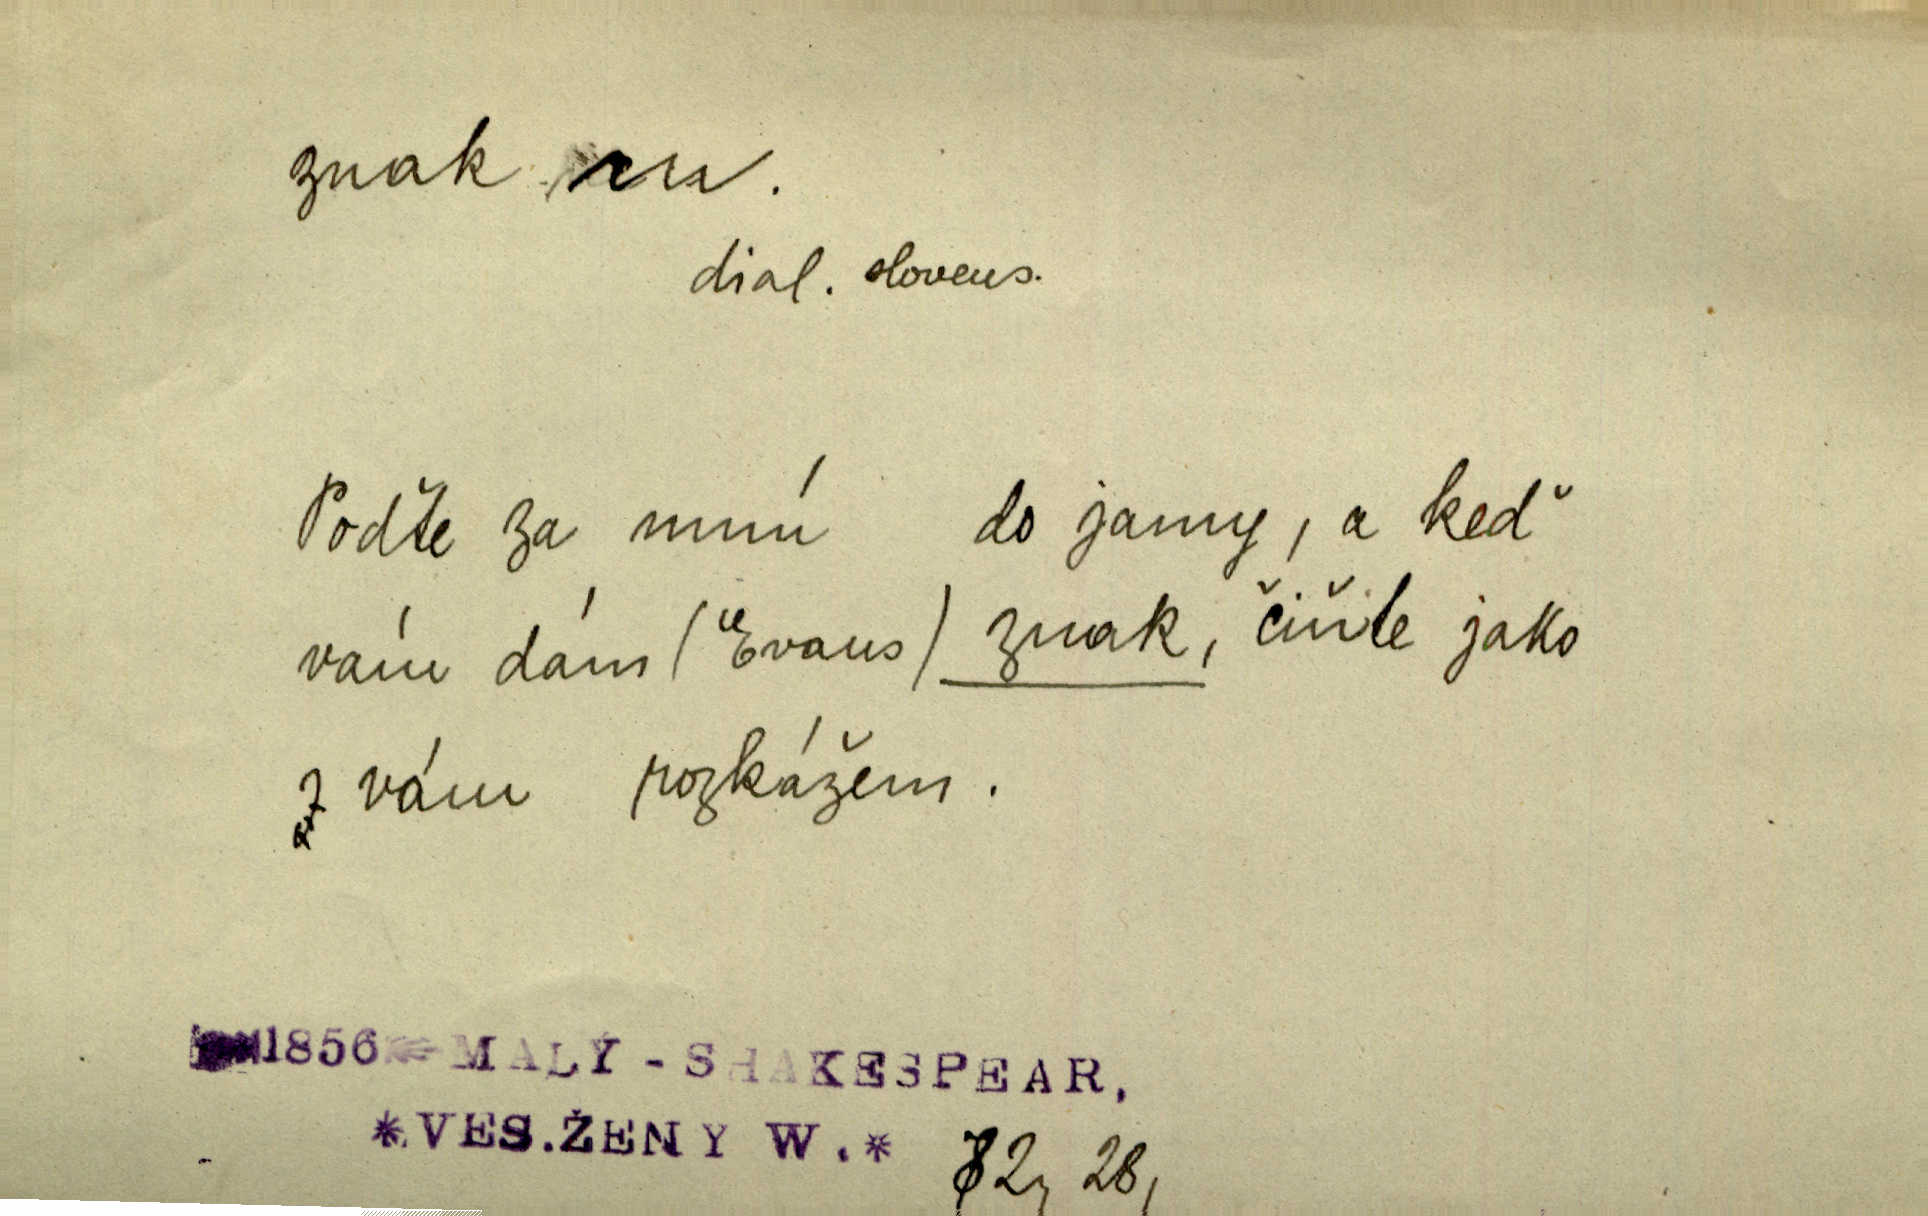 znak m.
dial. slovens.
Poďte za mnú do jamy, a keď
vám dám (Evans) znak, čiňte jako
vám rozkážem.
1856 MALÝ - SHAKESPEAR,
*VES.ŽENY W.*
82, 28,